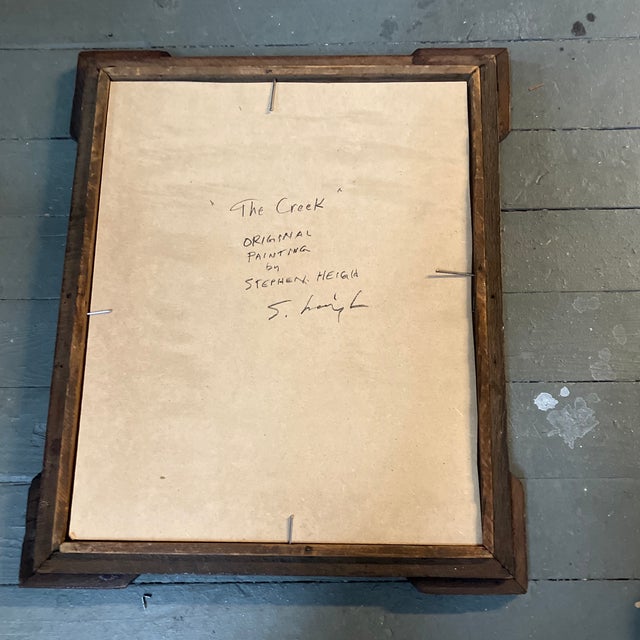 "The Creek"
ORIGINAL
PAINTING
by
STEPHEN HEIGH
S. Heigh